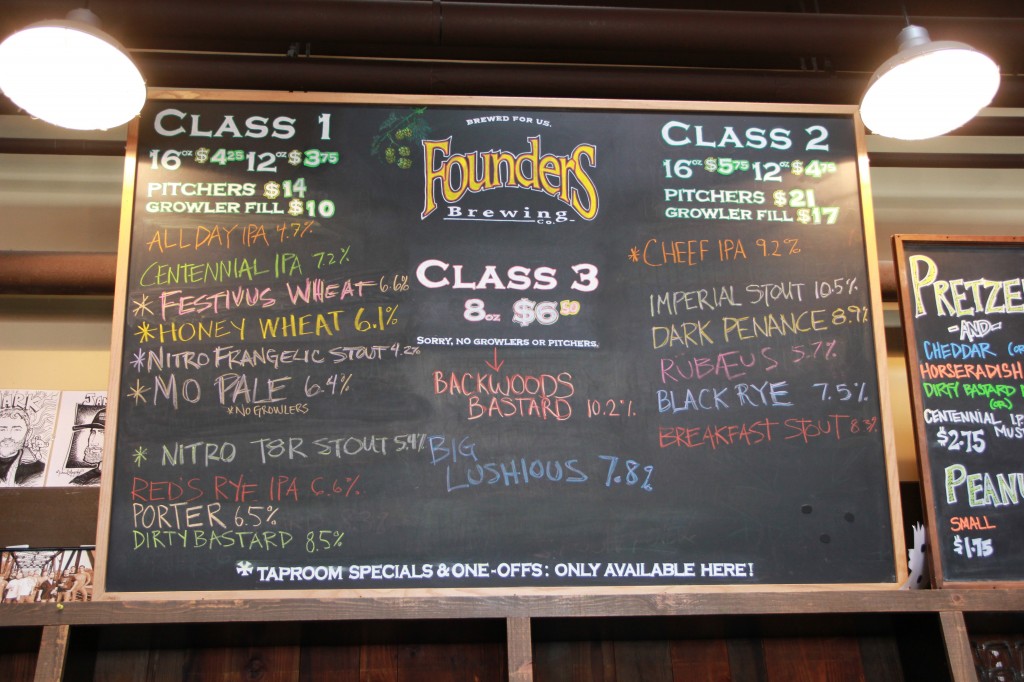 CLASS 1
16oz $4.25 12oz $3.75
PITCHERS $14
GROWLER FILL $10
ALL DAY IPA 4.7%
CENTENNIAL IPA 7.2%
* FESTIVUS WHEAT 6.6%
* HONEY WHEAT 6.1%
* NITRO FRANGELIC STOUT 4.2%
* MO PALE 6.4%
* NO GROWLERS
* NITRO T8R STOUT 5.4%
RED'S RYE IPA 6.6%
PORTER 6.5%
DIRTY BASTARD 8.5%
BREWED FOR US.
FOUNDERS
Brewing Co.
CLASS 3
8oz $6.50
SORRY, NO GROWLERS OR PITCHERS.
BACKWOODS
BASTARD 10.2%
BIG
LUSHIOUS 7.8%
CLASS 2
16oz $5.75 12oz $4.75
PITCHERS $21
GROWLER FILL $17
* CHEEF IPA 9.2%
IMPERIAL STOUT 10.5%
DARK PENANCE 8.9%
RÜBÆUS 5.7%
BLACK RYE 7.5%
BREAKFAST STOUT 8.3%
* TAPROOM SPECIALS & ONE-OFFS: ONLY AVAILABLE HERE!
PRETZE
-AND-
CHEDDAR (OR
HORSERADISH
DIRTY BASTARD
(OR)
CENTENNIAL I.P.
MUST
$2.75
PEANU
SMALL
$1.75